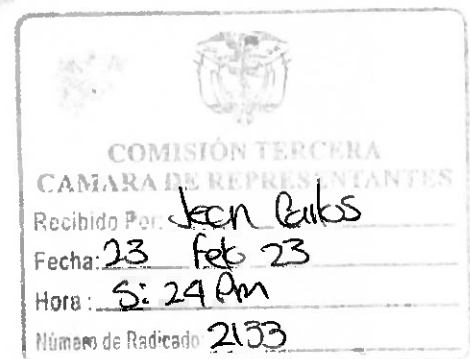 COMISIÓN TERCERA
CAMARA DE REPRESENTANTES
Recibido Por: Jean Carlos
Fecha: 23 Feb 23
Hora: 5:24 Pm
Número de Radicado 2133